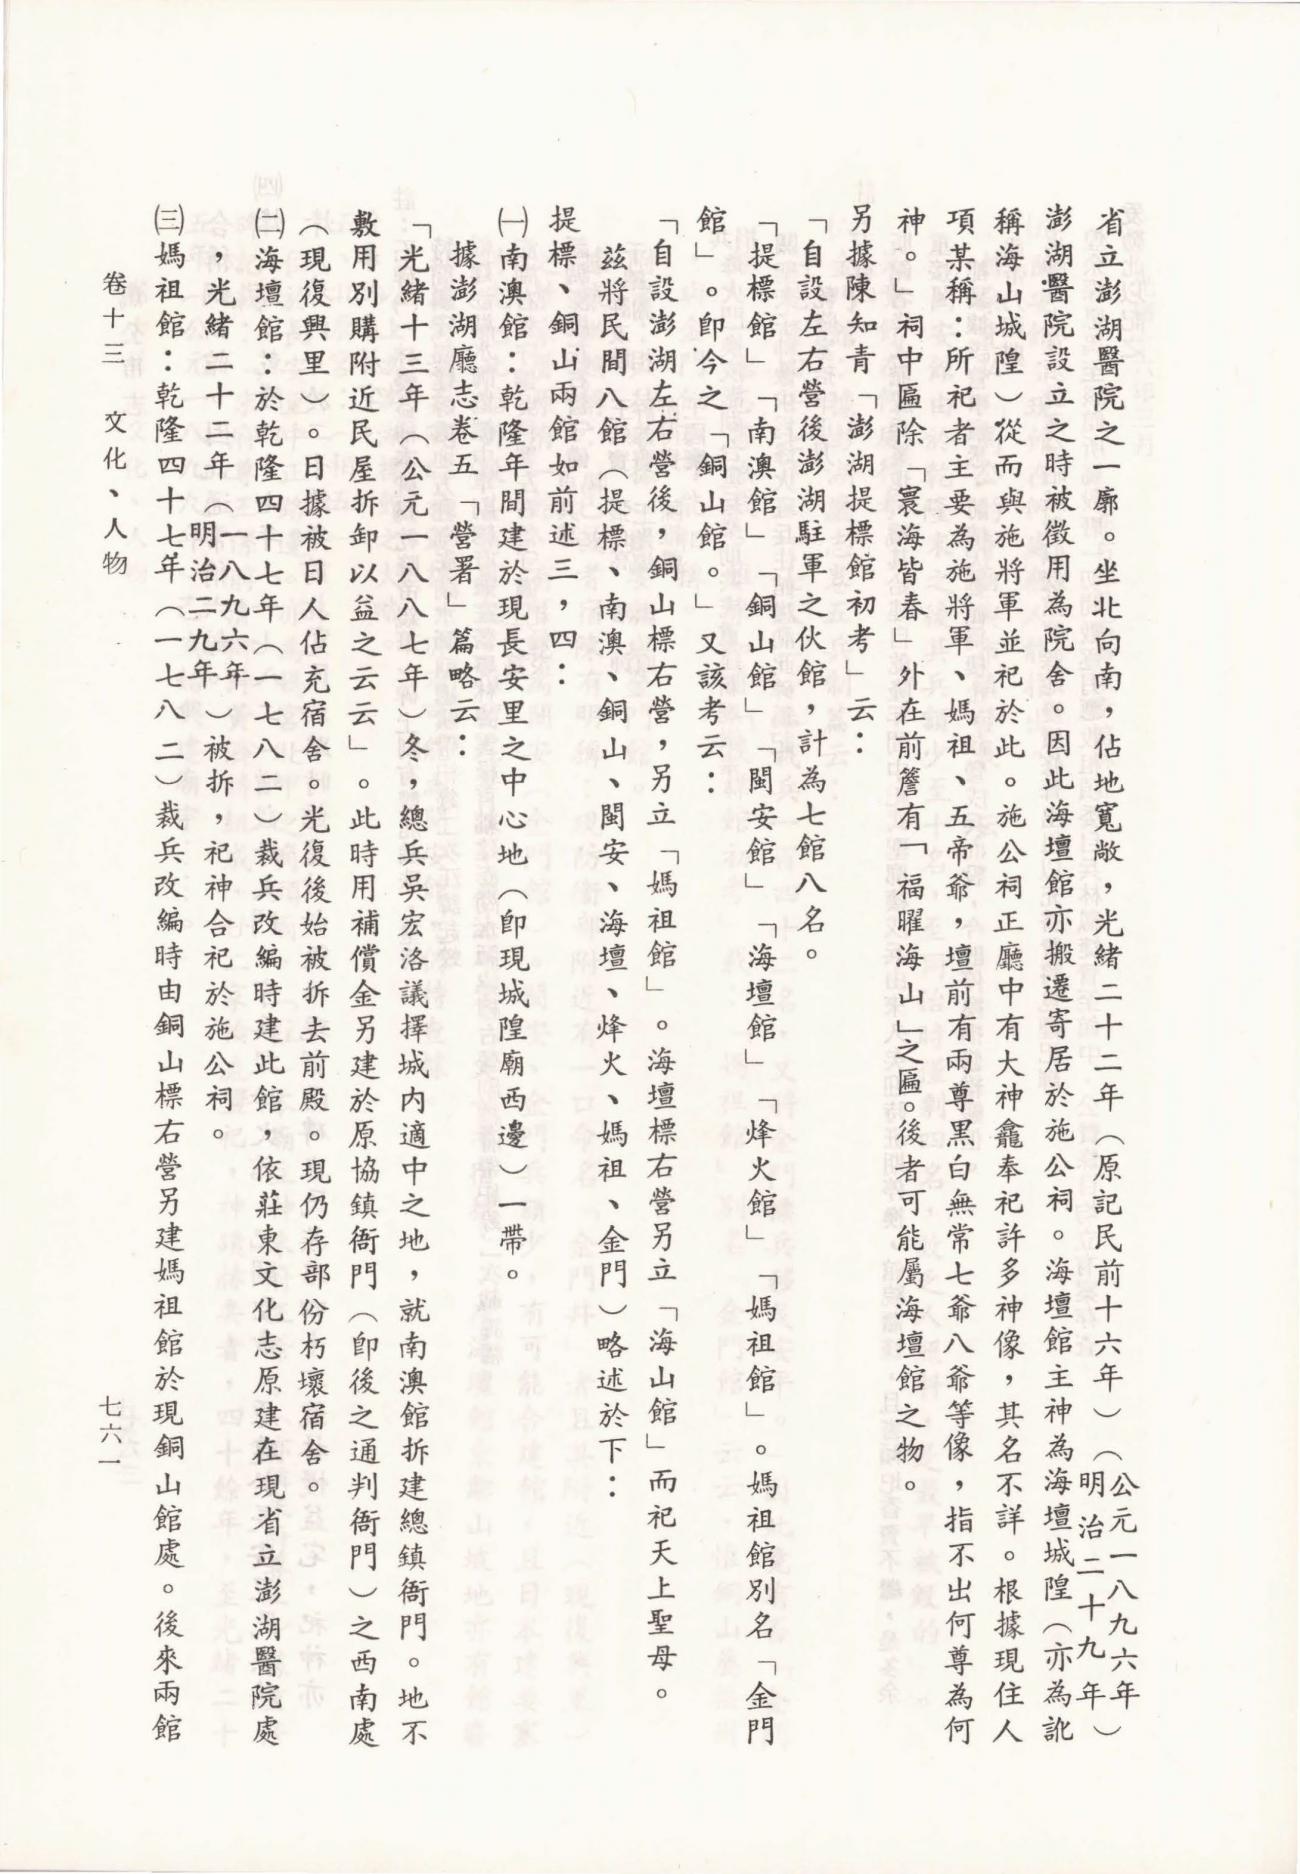 省立澎湖醫院之一廓。坐北向南，佔地寬敞，光緒二十二年（原記民前十六年）（公元一八九六年 明治二十九年）
澎湖醫院設立之時被徵用為院舍。因此海壇館亦搬遷寄居於施公祠。海壇館主神為海壇城隍（亦為訛
稱海山城隍）從而與施將軍並祀於此。施公祠正廳中有大神龕奉祀許多神像，其名不詳。根據現住人
項某稱：所祀者主要為施將軍、媽祖、五帝爺，壇前有兩尊黑白無常七爺八爺等像，指不出何尊為何
神。」祠中區除「寰海皆春」外在前簷有「福曜海山」之匾。後者可能屬海壇館之物。
另據陳知青「澎湖提標館初考」云：
「自設左右營後澎湖駐軍之伙館，計為七館八名。
「提標館」「南澳館」「銅山館」「閩安館」「海壇館」「烽火館」「媽祖館」。媽祖館別名「金門
館」。卽今之「銅山館。」又該考云：
「自設澎湖左右營後，銅山標右營，另立「媽祖館」。海壇標右營另立「海山館」而祀天上聖母。
茲將民間八館（提標、南澳、銅山、閩安、海壇、烽火、媽祖、金門）略述於下：
提標、銅山兩館如前述三，四：
㈠南澳館：乾隆年間建於現長安里之中心地（卽現城隍廟西邊）一帶。
據澎湖廳志卷五「營署」篇略云：
「光緒十三年（公元一八八七年）冬，總兵吳宏洛議擇城內適中之地，就南澳館拆建總鎮衙門。地不
敷用別購附近民屋拆卸以益之云云」。此時用補償金另建於原協鎮衙門（卽後之通判衙門）之西南處
（現復興里）。日據被日人佔充宿舍。光復後始被拆去前殿。現仍存部份朽壞宿舍。
㈡海壇館：於乾隆四十七年（一七八二）裁兵改編時建此館，依莊東文化志原建在現省立澎湖醫院處
，光緒二十二年（一八九六年 明治二九年）被拆，祀神合祀於施公祠。
㈢媽祖館：乾隆四十七年（一七八二）裁兵改編時由銅山標右營另建媽祖館於現銅山館處。後來兩館
卷十三　文化、人物
七六一